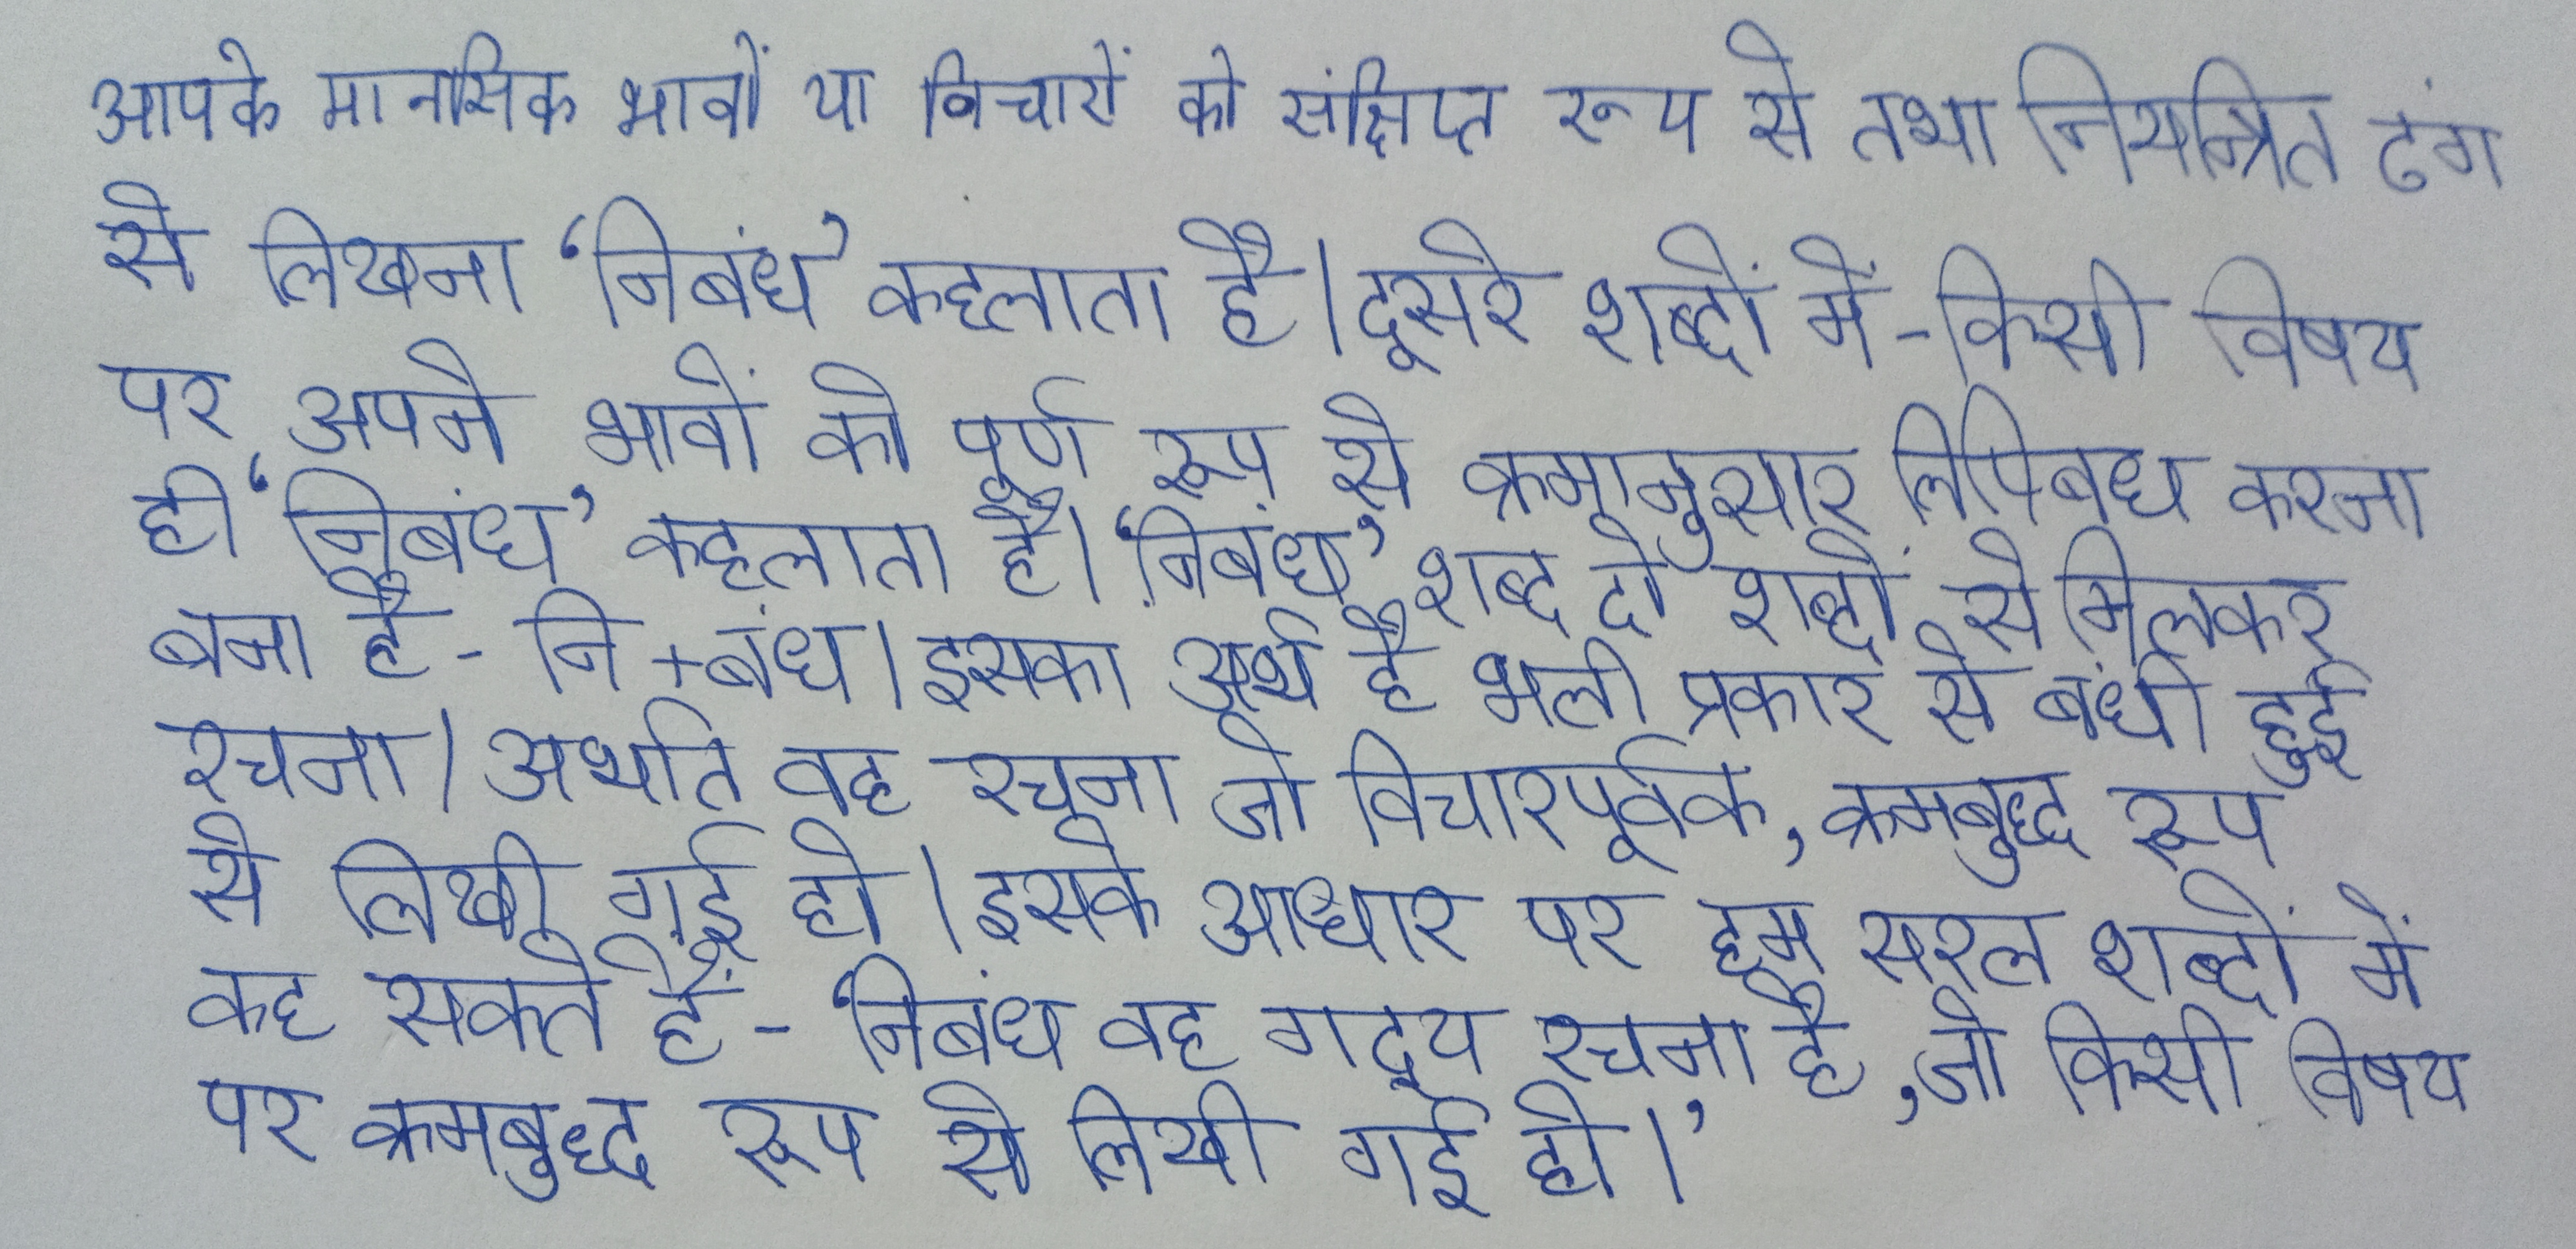 आपके मानसिक भावों या विचारों को संक्षिप्त रूप से तथा नियन्त्रित ढंग
से लिखना ‘निबंध’ कहलाता है। दूसरे शब्दों में - किसी विषय
पर अपने भावों को पूर्ण रूप से क्रमानुसार लिपिबध करना
ही ‘निबंध’ कहलाता है। ‘निबंध’ शब्द दो शब्दों से मिलकर
बना है - नि + बंध। इसका अर्थ है भली प्रकार से बंधी हुई
रचना। अर्थात वह रचना जो विचारपूर्वक, क्रमबुद्ध रूप
से लिखी गई हो। इसके आधार पर हम सरल शब्दों में
कह सकते हैं - ‘निबंध वह गद्य रचना है, जो किसी विषय
पर क्रमबुद्ध रूप से लिखी गई हो।’